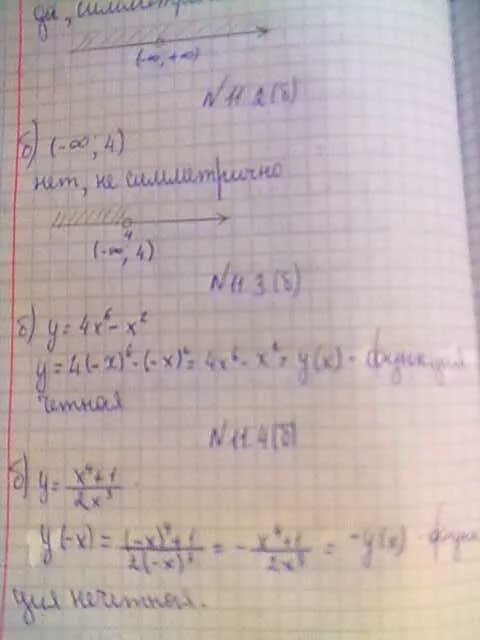 да, симметрич
(-∞, +∞)
№11.2(б)
б) (-∞; 4)
нет, не симметрично
4
(-∞, 4)
№11.3(б)
б) y = 4x⁶ - x²
y = 4(-x)⁶ - (-x)² = 4x⁶ - x² = y(x) - функция
четная
№11.4(б)
б) y = x⁴+1 / 2x³
y(-x) = (-x)⁴+1 / 2(-x)³ = - x⁴+1 / 2x³ = -y(x) - функ
ция нечетная.